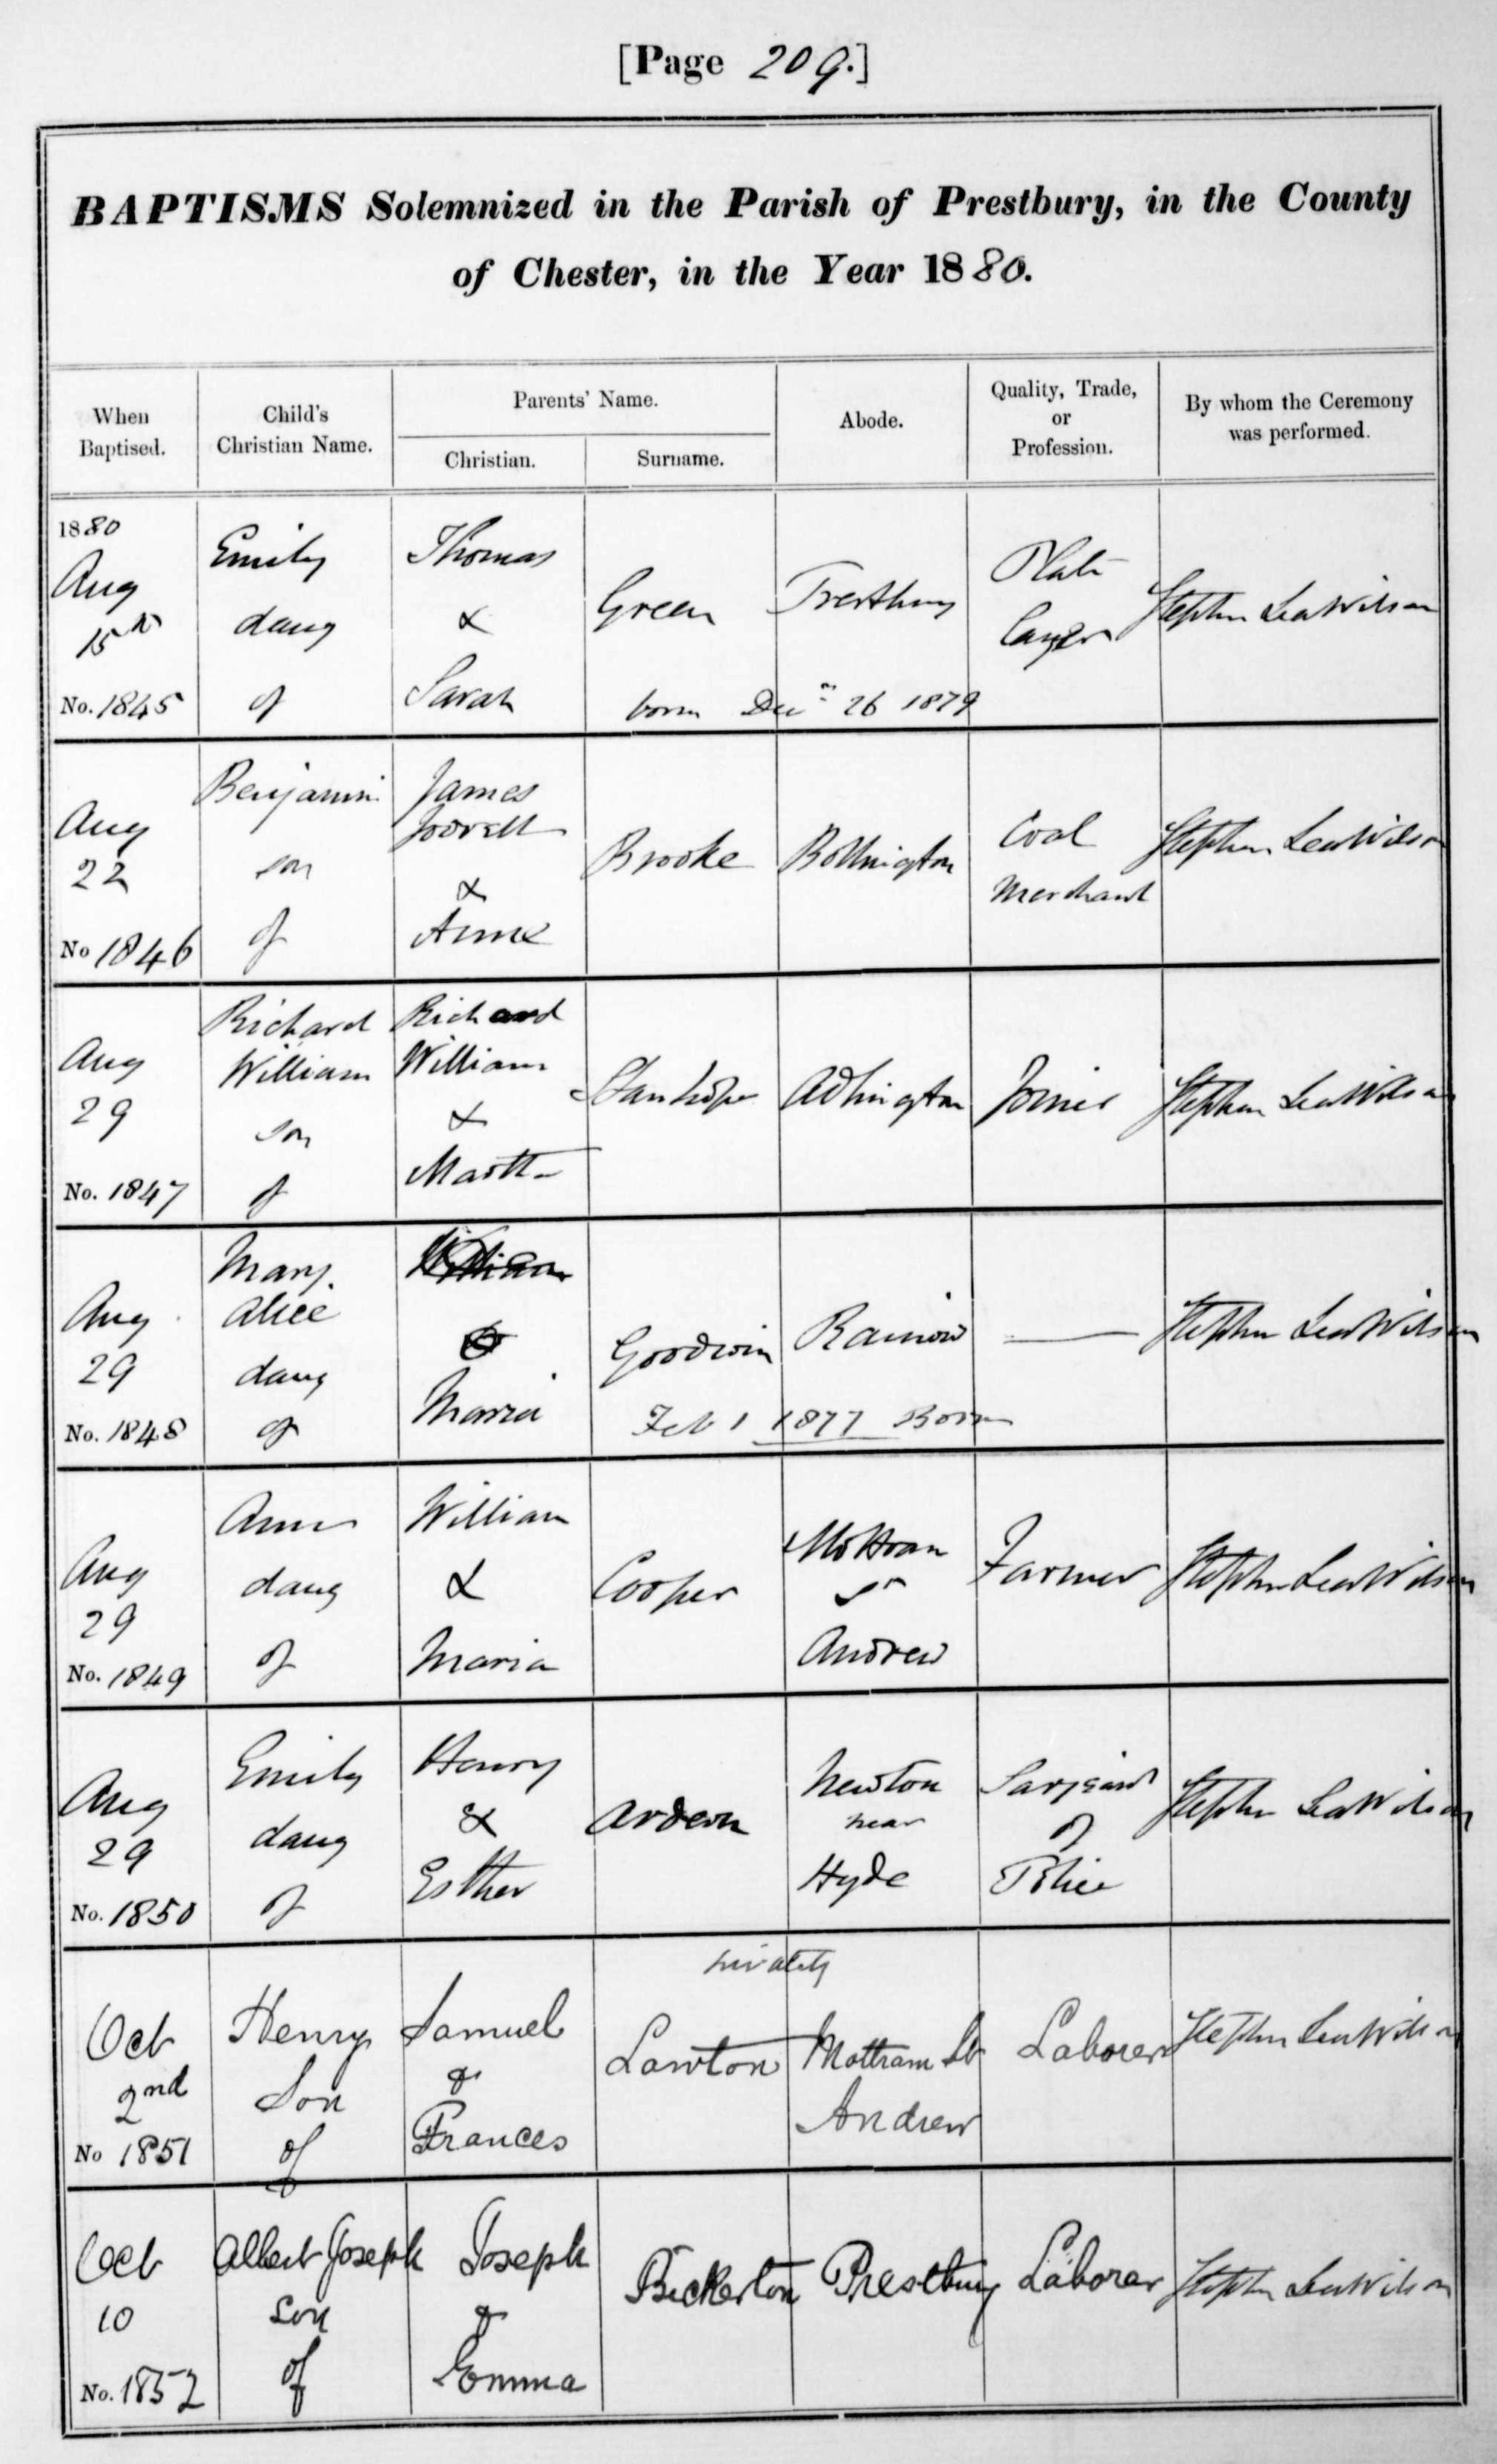 [Page 209.]
BAPTISMS Solemnized in the Parish of Prestbury, in the County
of Chester, in the Year 1880.
When Baptised.
Child's Christian Name.
Parents' Name.
Christian.
Surname.
Abode.
Quality, Trade, or Profession.
By whom the Ceremony was performed.
1880
Aug
15th
No. 1845
Emily
daug
of
Thomas
&
Sarah
Green
Prestbury
Plate
Layer
Stephen Lea Wilson
born Decr 26 1879
Aug
22
No 1846
Benjamin
son
of
James
&
Anne
Brooke
Bollington
Coal
Merchant
Stephen Lea Wilson
Aug
29
No. 1847
Richard
William
son
of
Richard
William
&
Martha
Stanhope
Adlington
Joiner
Stephen Lea Wilson
Aug
29
No. 1848
Mary
Alice
daug
of
William
&
Maria
Goodwin
Rainow
Stephen Lea Wilson
Feb 1 1877 Born
Aug
29
No. 1849
Ann
daug
of
William
&
Maria
Cooper
Mottram
St
Andrew
Farmer
Stephen Lea Wilson
Aug
29
No. 1850
Emily
daug
of
Henry
&
Esther
Ardern
Newton
near
Hyde
Sarjeant
of
Police
Stephen Lea Wilson
privately
Oct
2nd
No 1851
Henry
Son
of
Samuel
&
Frances
Lawton
Mottram St
Andrew
Laborer
Stephen Lea Wilson
Oct
10
No. 1852
Albert Joseph
Son
of
Joseph
&
Emma
Bickerton
Prestbury
Laborer
Stephen Lea Wilson